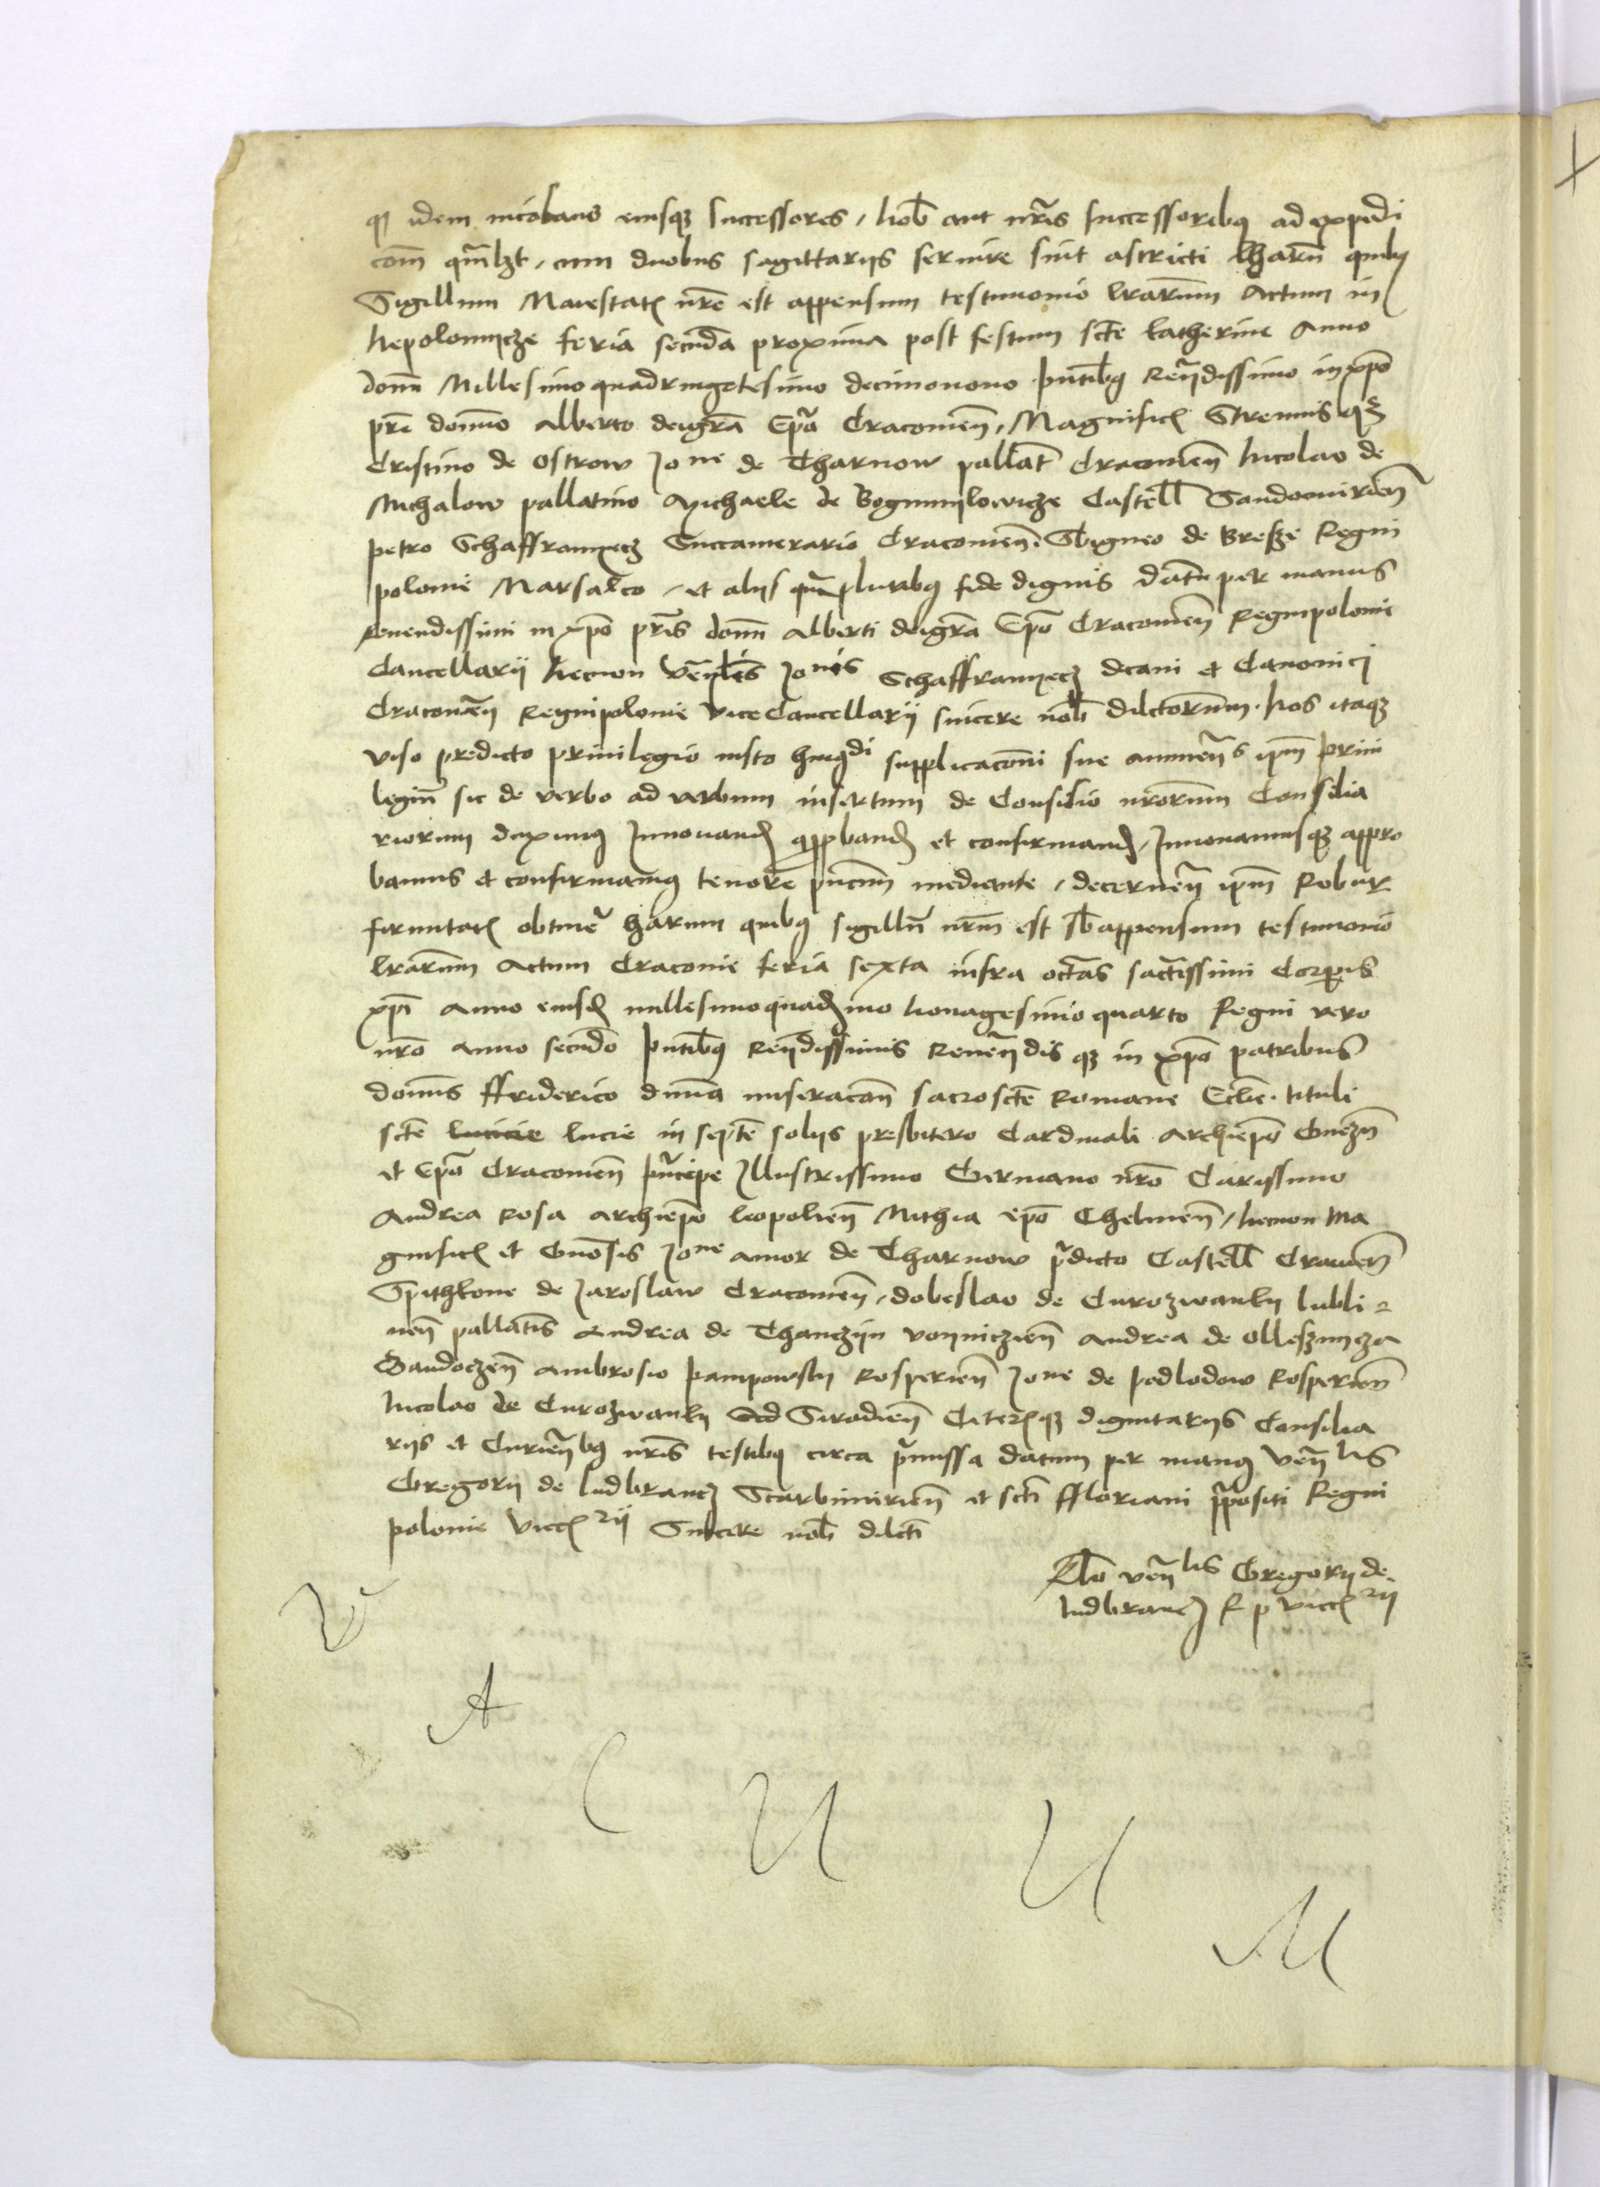 q idem incolatus eiusqz Successores, Nob aut nris Successoribus ad expedi
com qmlzt, cum duobus sagittariis servire sint astricti harum quibus
Sigillum Maiestatis nre est appensum testimonio lrarum Actum in
Nepolomycze feria secunda proxima post festum scte Katherine Anno
domi Millesimo quadringetesimo decimonono pntibus Reverendissimo in xpo
pre domino Alberto dei gra Epo Cracomen, Magnificis Strenuis qz
Cristino de Ostrow Jone de Tharnow pallat Cracomen Nicolao de
Michalow pallatino Michaele de Bogumylowicze Castell Sandomirien
petro Schaffranyecz Succamerario Cracomen, Sbigneo de Bresze Regni
polonie Marsalco, et aliis qm pluribus fide dignis Datum per manus
Reverendissimi in xpo pris domi Alberti dei gra Epo Cracomen Regni polonie
Cancellarii Necnon venlis Jonis Schaffranyecz decani et Canonici
Cracomen Regni polonie vice Cancellarii sincere nob dilctorum. Nos itaqz
viso predicto privilegio iusto huiusmodi supplicacioni sue annuen ipm privi
legium sic de verbo ad verbum insertum de Consilio nrorum Consilia
riorum duximus Innovand approband et confirmand, Innovamusqz appro
bamus et confirmamus tenore pncium mediante, decernen ipm Robur
firmitatis obtinere harum quibus sigillum nrm est sbappensum testimonio
lrarum Actum Cracovie feria sexta infra octavas sactissimi Corporis
xpi Anno eiusd millesimoquadrimo Nonagesimo quarto Regni vero
nro Anno secundo pntibus Revndissimis Reveren dis qz in xpo patribus
domis ffriderico divina miseracione sacroscte Romane Eclie. tituli
scte lucie in septe soliis presbitero Cardinali Archiepo Gnezn
et Epo Cracomen principe Illustrissimo Germano nro Carissimo
Andrea Rosa archiepo leopolien Mathia epo Chelmen, Necnon Ma
gnificis et Gnosis Jone amor de Tharnow predicto Castell Cracomen
Spithkone de Jaroslaw Cracomen, dobeslao de Curozwanky lubli
nen pallatis Andrea de Thanczin voyniczien Andrea de Olleschnicza
Sandoczen Ambrosio pampowsky Rosperien Jone de podlodow Rosperien
Nicolao de Curozwanky Siradien Ceterisqz dignitariis Consilia
riis et Curien bus nris testibus circa premissa datum per manus Venlis
Gregorii de ludbrancz Scarbimirien et scti ffloriani prepositi Regni
polonie vicecancell rii Sincere nob dilcti
Rlo venlis Gregorii de
ludbrancz R p vicecancell rii
V
A
C
U
U
M